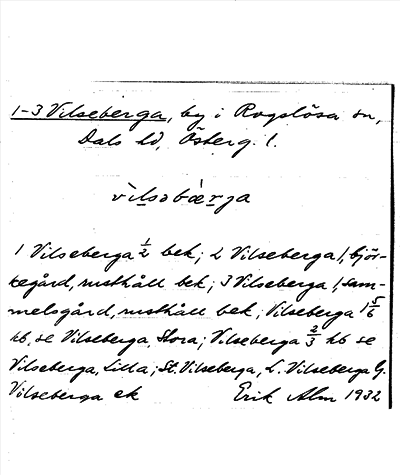 1-3 Vilseberga, by i Rogslösa sn,
Dals hd, Österg. l.
vìlsəbæ̀rga
1 Vilseberga 1/2 bek; 2 Vilseberga l, björ-
kegård, rusthåll bek; 3 Vilseberga l, sam-
melsgård, rusthåll bek; Vilseberga 1 5/6
kb, se Vilseberga, Stora; Vilseberga 2/3 kb se
Vilseberga, Lilla; St. Vilseberga, L. Vilseberga G.
Vilseberga ek Erik Alm 1932